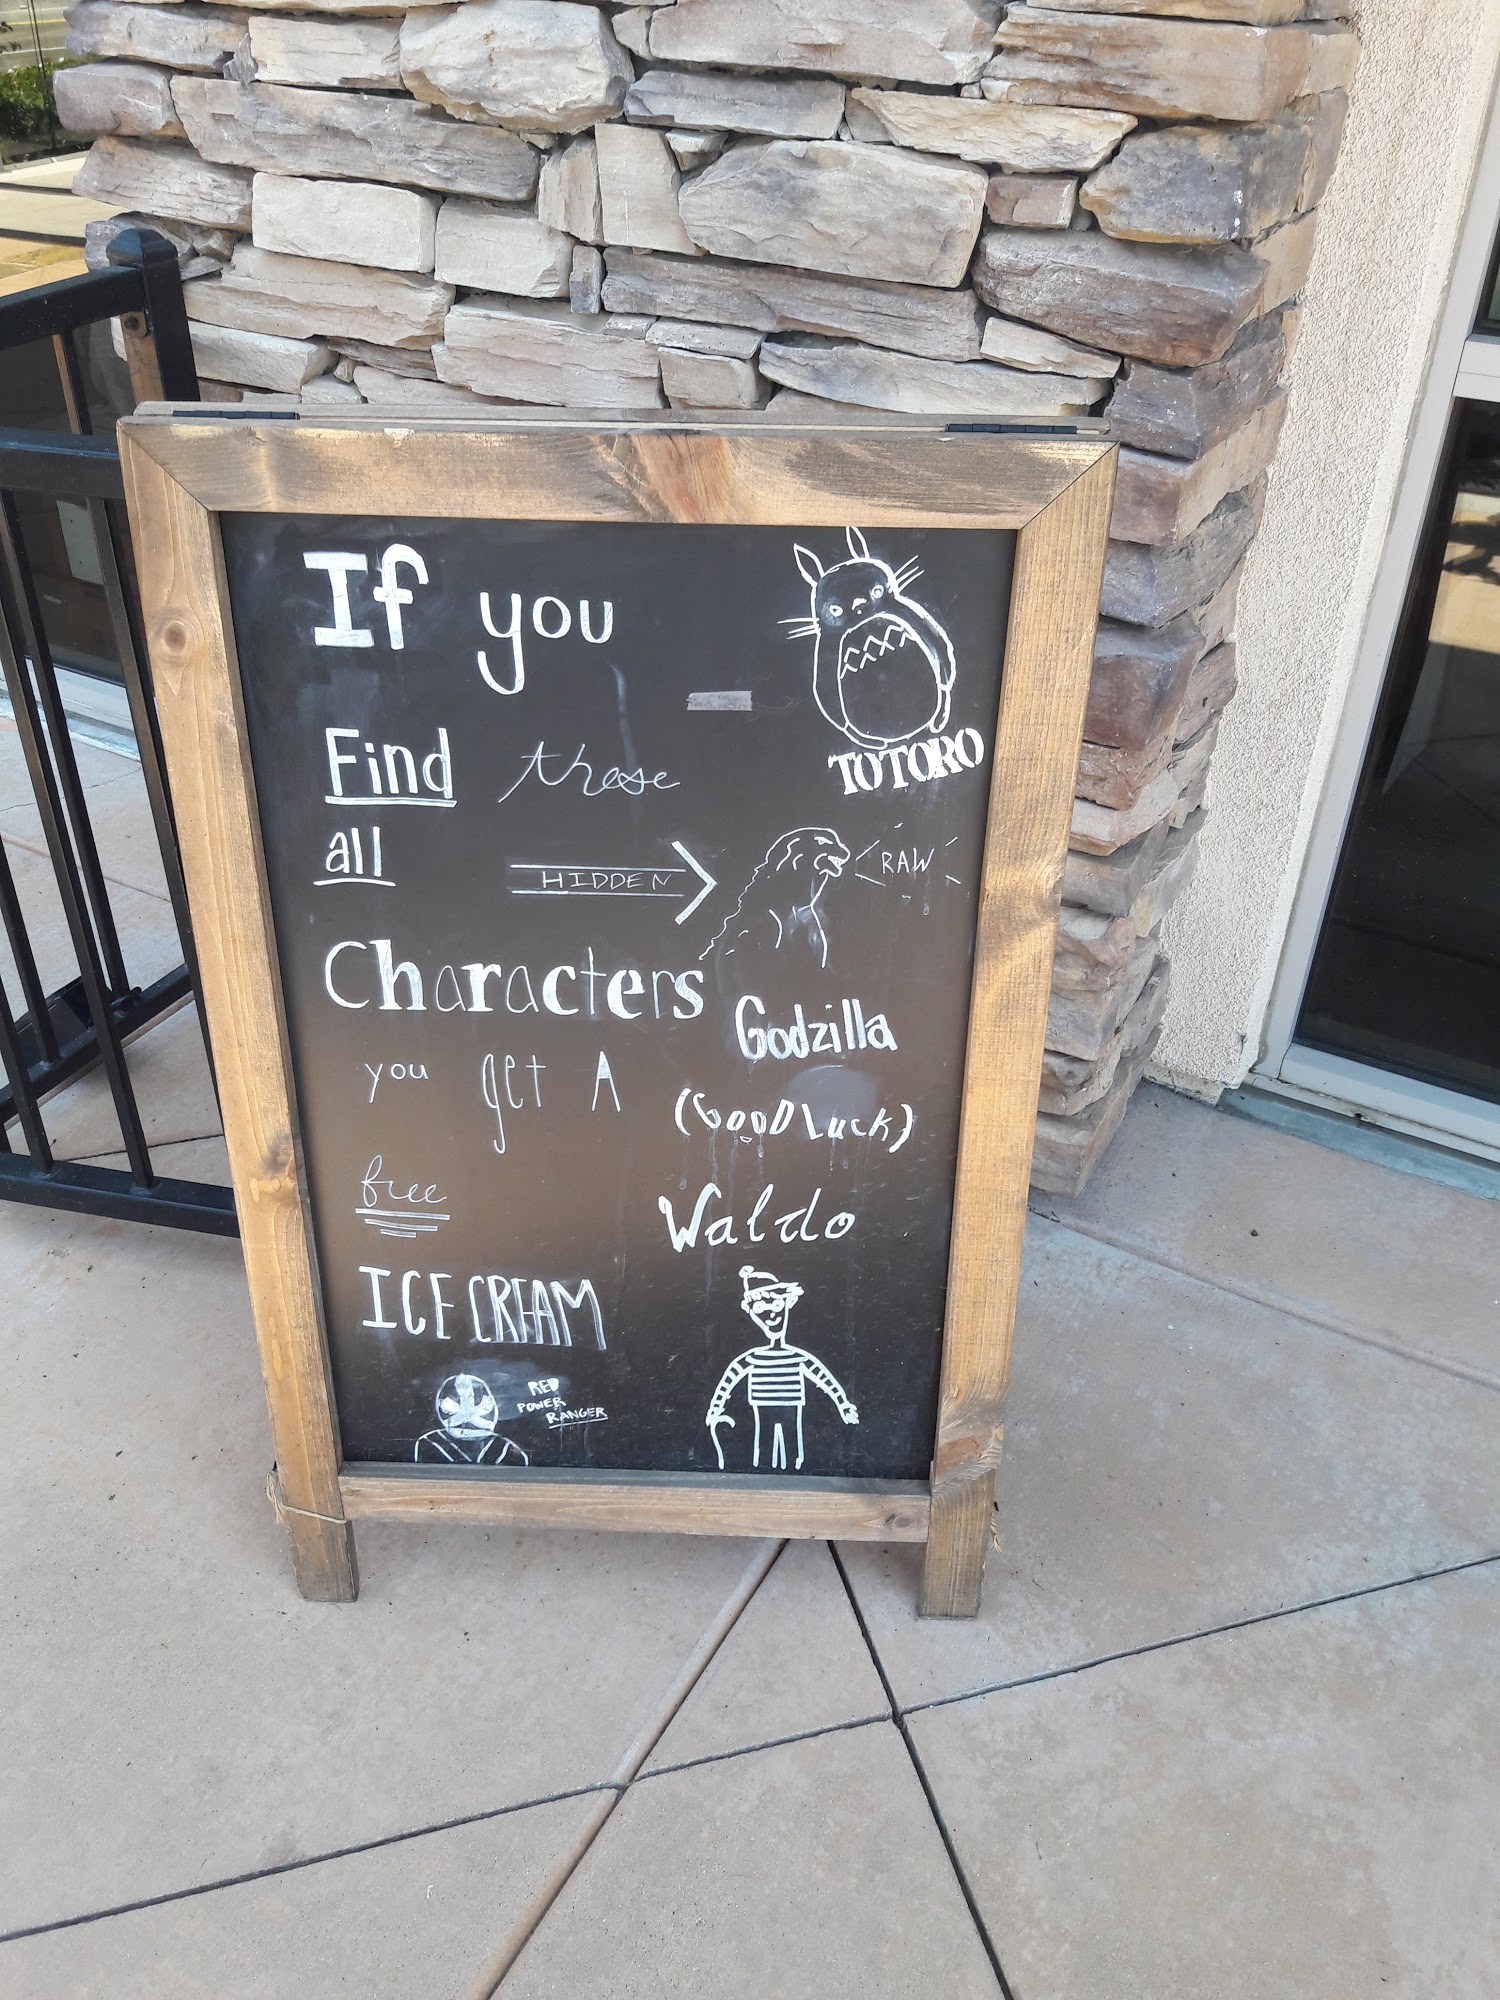 If you
TOTORO
Find these
all
HIDDEN
RAW
Characters
Godzilla
you get A
(GooD Luck)
free
Waldo
ICE CREAM
RED
POWER
RANGER